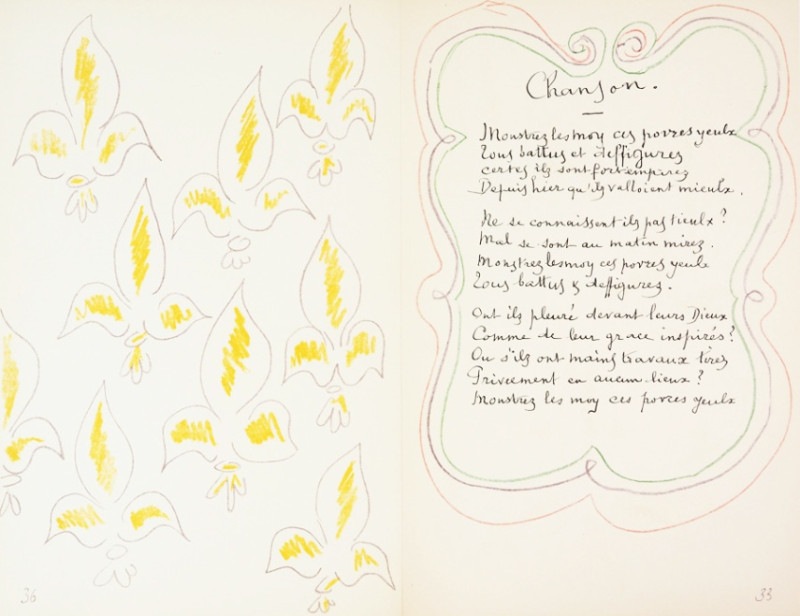 36
Chanson.
Monstrez les moy ces povres yeulx
Tous battus et deffigurez
certes ils sont fort empirez
Depuis hier qu'ils valloient mieulx.
Ne se connaissent ils pas tieulx ?
Mal se sont au matin mirez.
Monstrez les moy ces povres yeulx
Tous battus & deffigurez.
Ont ils pleuré devant leurs Dieux
Comme de leur grace inspirés ?
Ou s'ils ont mains travaux tirez
Priveement en aucun lieux ?
Monstrez les moy ces povres yeulx
33